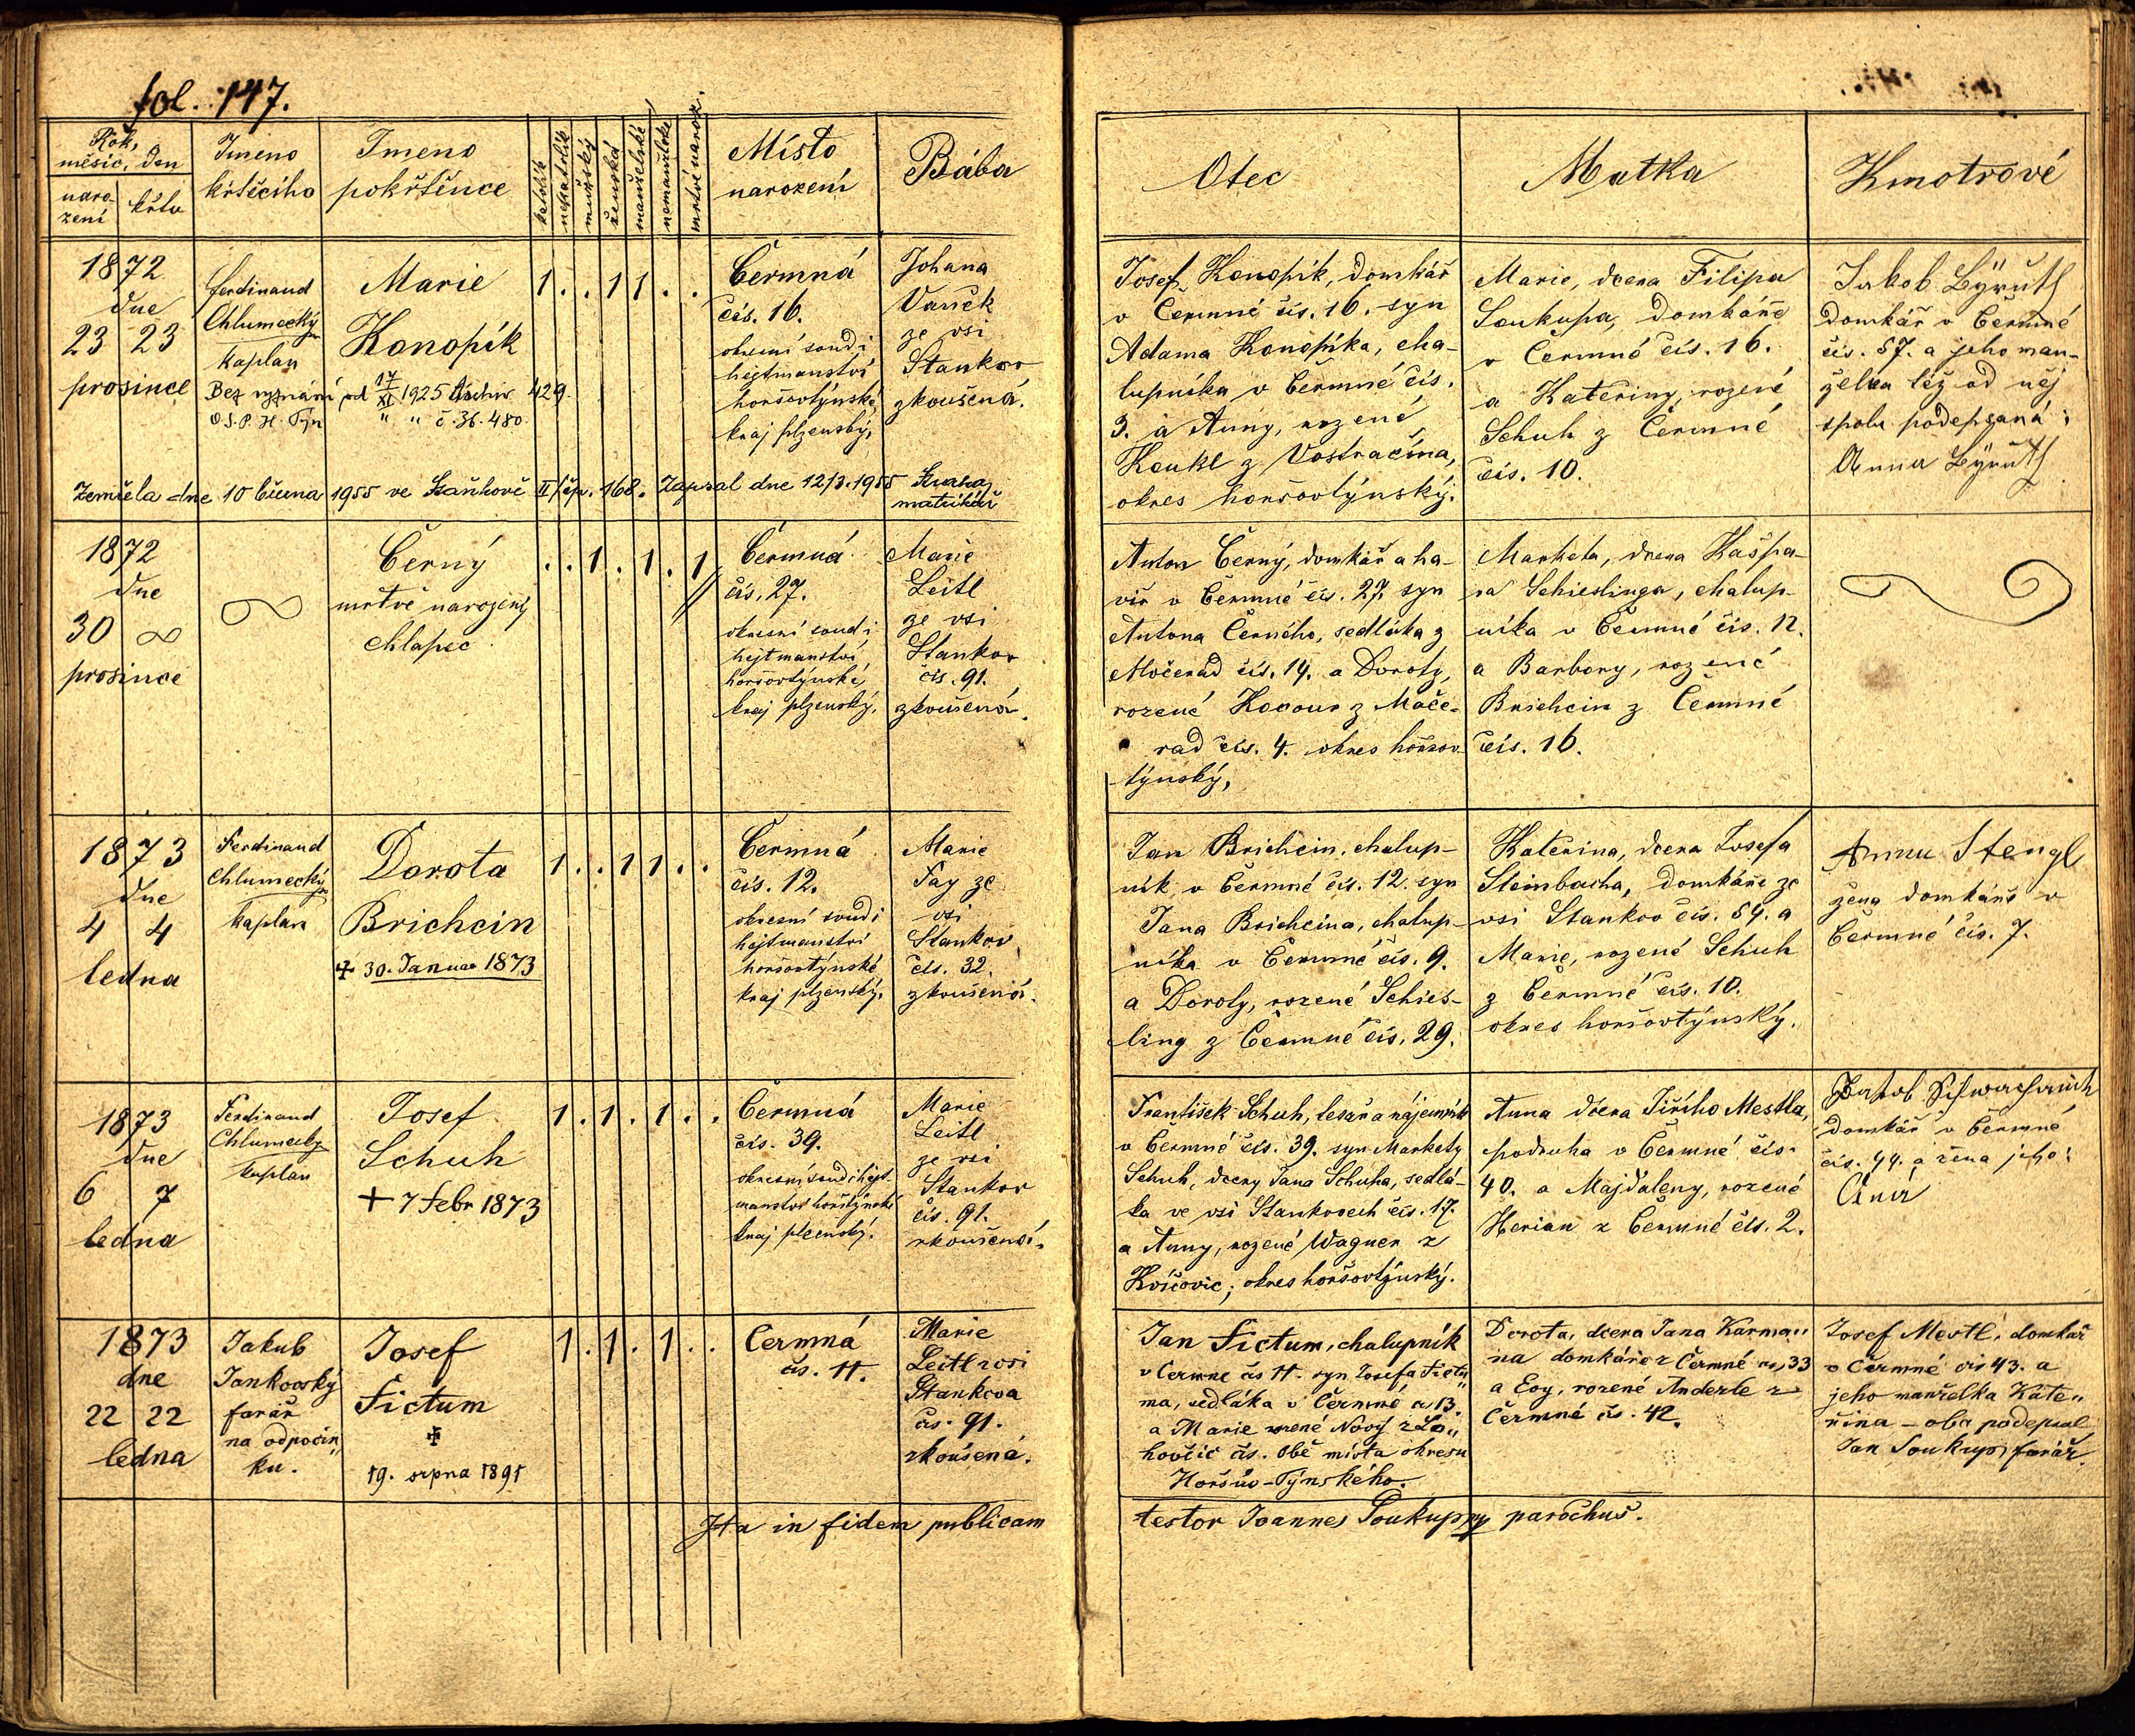 fol. 147.
Rok, měsíc, den
narození
křtu
Jmeno
křtícího
Jmeno
pokřtěnce
katolík
nekatolík
mužský
ženská
manželské
nemanželské
mrtvě naroz.
Místo
narození
Bába
Otec
Matka
Kmotrové
1872
dne
23 23
prosince
Ferdinand
Chlumecký
kaplan
Marie
Konopík
Bez vyznání od 17/XI 1925 Archiv 429.
O.S.P. H. Týn " " č. 36.480
1 . . 1 1 . .
Čermná
čís. 16.
okresní soud i
hejtmanství
horšovtýnské,
kraj plzenský,
Johana
Vaněk
ze vsi
Stankov
zkoušená.
Zemřela dne 10 března 1955 ve Staňkově II/čp. 168. Zapsal dne 12/3.1955
matrikář
Josef Konopík, domkář
v Čermné čís. 16. syn
Adama Konopíka, cha-
lupníka v Čermné čís.
3. a Anny, rozené
Koukl z Vostračína,
okres horšovtýnský.
Marie, dcera Filipa
Soukupa, domkáře
v Čermné čís. 16.
a Kateřiny, rozené
Schuh z Čermné
čís. 10.
Jakob Byruth
domkář v Čermné
čís. 57. a jeho man-
želka též od něj
spolu podepsaná:
Anna Byruth
1872
dne
30
prosince
Černý
mrtvě narozený
chlapec
. . 1 . 1 . 1
Čermná
čís. 27.
okresní soud i
hejtmanství
horšovtýnské,
kraj plzenský,
Marie
Leitl
ze vsi
Stankov
čís. 91.
zkoušená.
Anton Černý, domkář a ha-
víř v Čermné čís. 27. syn
Antona Černého, sedláka z
Močerad čís. 14. a Doroty,
rozené Kocour z Moče-
rad čís. 4. okres horšov-
týnský,
Marketa, dcera Kašpa-
ra Schieslinga, chalup-
níka v Čermné čís. 12.
a Barbory, rozené
Brichcin z Čermné
čís. 16.
1873
dne
4 4
ledna
Ferdinand
Chlumecký
kaplan
Dorota
Brichcin
+ 30. Januar 1873
1 . . 1 1 . .
Čermná
čís. 12.
okresní soud i
hejtmanství
horšovtýnské
kraj plzenský.
Marie
Fay ze
vsi
Stankov
čís. 32.
zkoušená.
Jan Brichcin, chalup-
ník v Čermné čís. 12. syn
Jana Brichcina, chalup-
níka v Čermné čís. 9.
a Doroty, rozené Schies-
ling z Čermné čís. 29.
Katerina, dcera Josefa
Steinbacha, domkáře ze
vsi Stankov čís. 54. a
Marie, rozené Schuh
z Čermné čís. 10.
okres horšovtýnský.
Anna Stengl
žena domkáře v
Čermné čís. 7.
1873
dne
6 7
ledna
Ferdinand
Chlumecký
kaplan
Josef
Schuh
+ 7 Febr 1873
1 . 1 . 1 . .
Čermná
čís. 39.
okresní soud i hejt-
manství horštýnské
kraj plzenský.
Marie
Leitl
ze vsi
Stankov
čís. 91.
zkoušená.
František Schuh, tesař a nájemník
v Čermné čís. 39. syn Markety
Schuh, dcery Jana Schuha, sedlá-
ka ve vsi Stankovech čís. 17.
a Anny, rozené Wagner z
Kvíčovic, okres horšovtýnský.
Anna dcera Jiřího Mestla,
podruha v Čermné čís.
40. a Majdaleny, rozené
Herian z Čermné čís. 2.
Jakob
domkář v Čermné
čís. 44. a žena jeho:
1873
dne
22 22
ledna
Jakub
Jankovský
farář
na odpočin„
ku.
Josef
Fictum
+
19. srpna 1891
1 . 1 . 1 . .
Čermná
čís. 11.
Marie
Leitl ze vsi
Stankova
čís. 91.
zkoušená.
Jan Fictum, chalupník
v Čermné čís 11. syn Josefa Fictu„
ma, sedláka v Čermné čs 13.
a Marie rozené Nový z Lo„
hovčic čís. obě místa okresu
Horšův-Týnského.
Dorota, dcera Jana Karma„
na domkáře z Čermné čís. 33
a Evy, rozené Anderle z
Čermné čís. 42.
Josef Mestl, domkář
v Čermné čís 43. a
jeho manželka Kate„
řina – oba podepsal
Jan Soukup, farář
Ita in fidem publicam testor Joannes Soukup parochus.